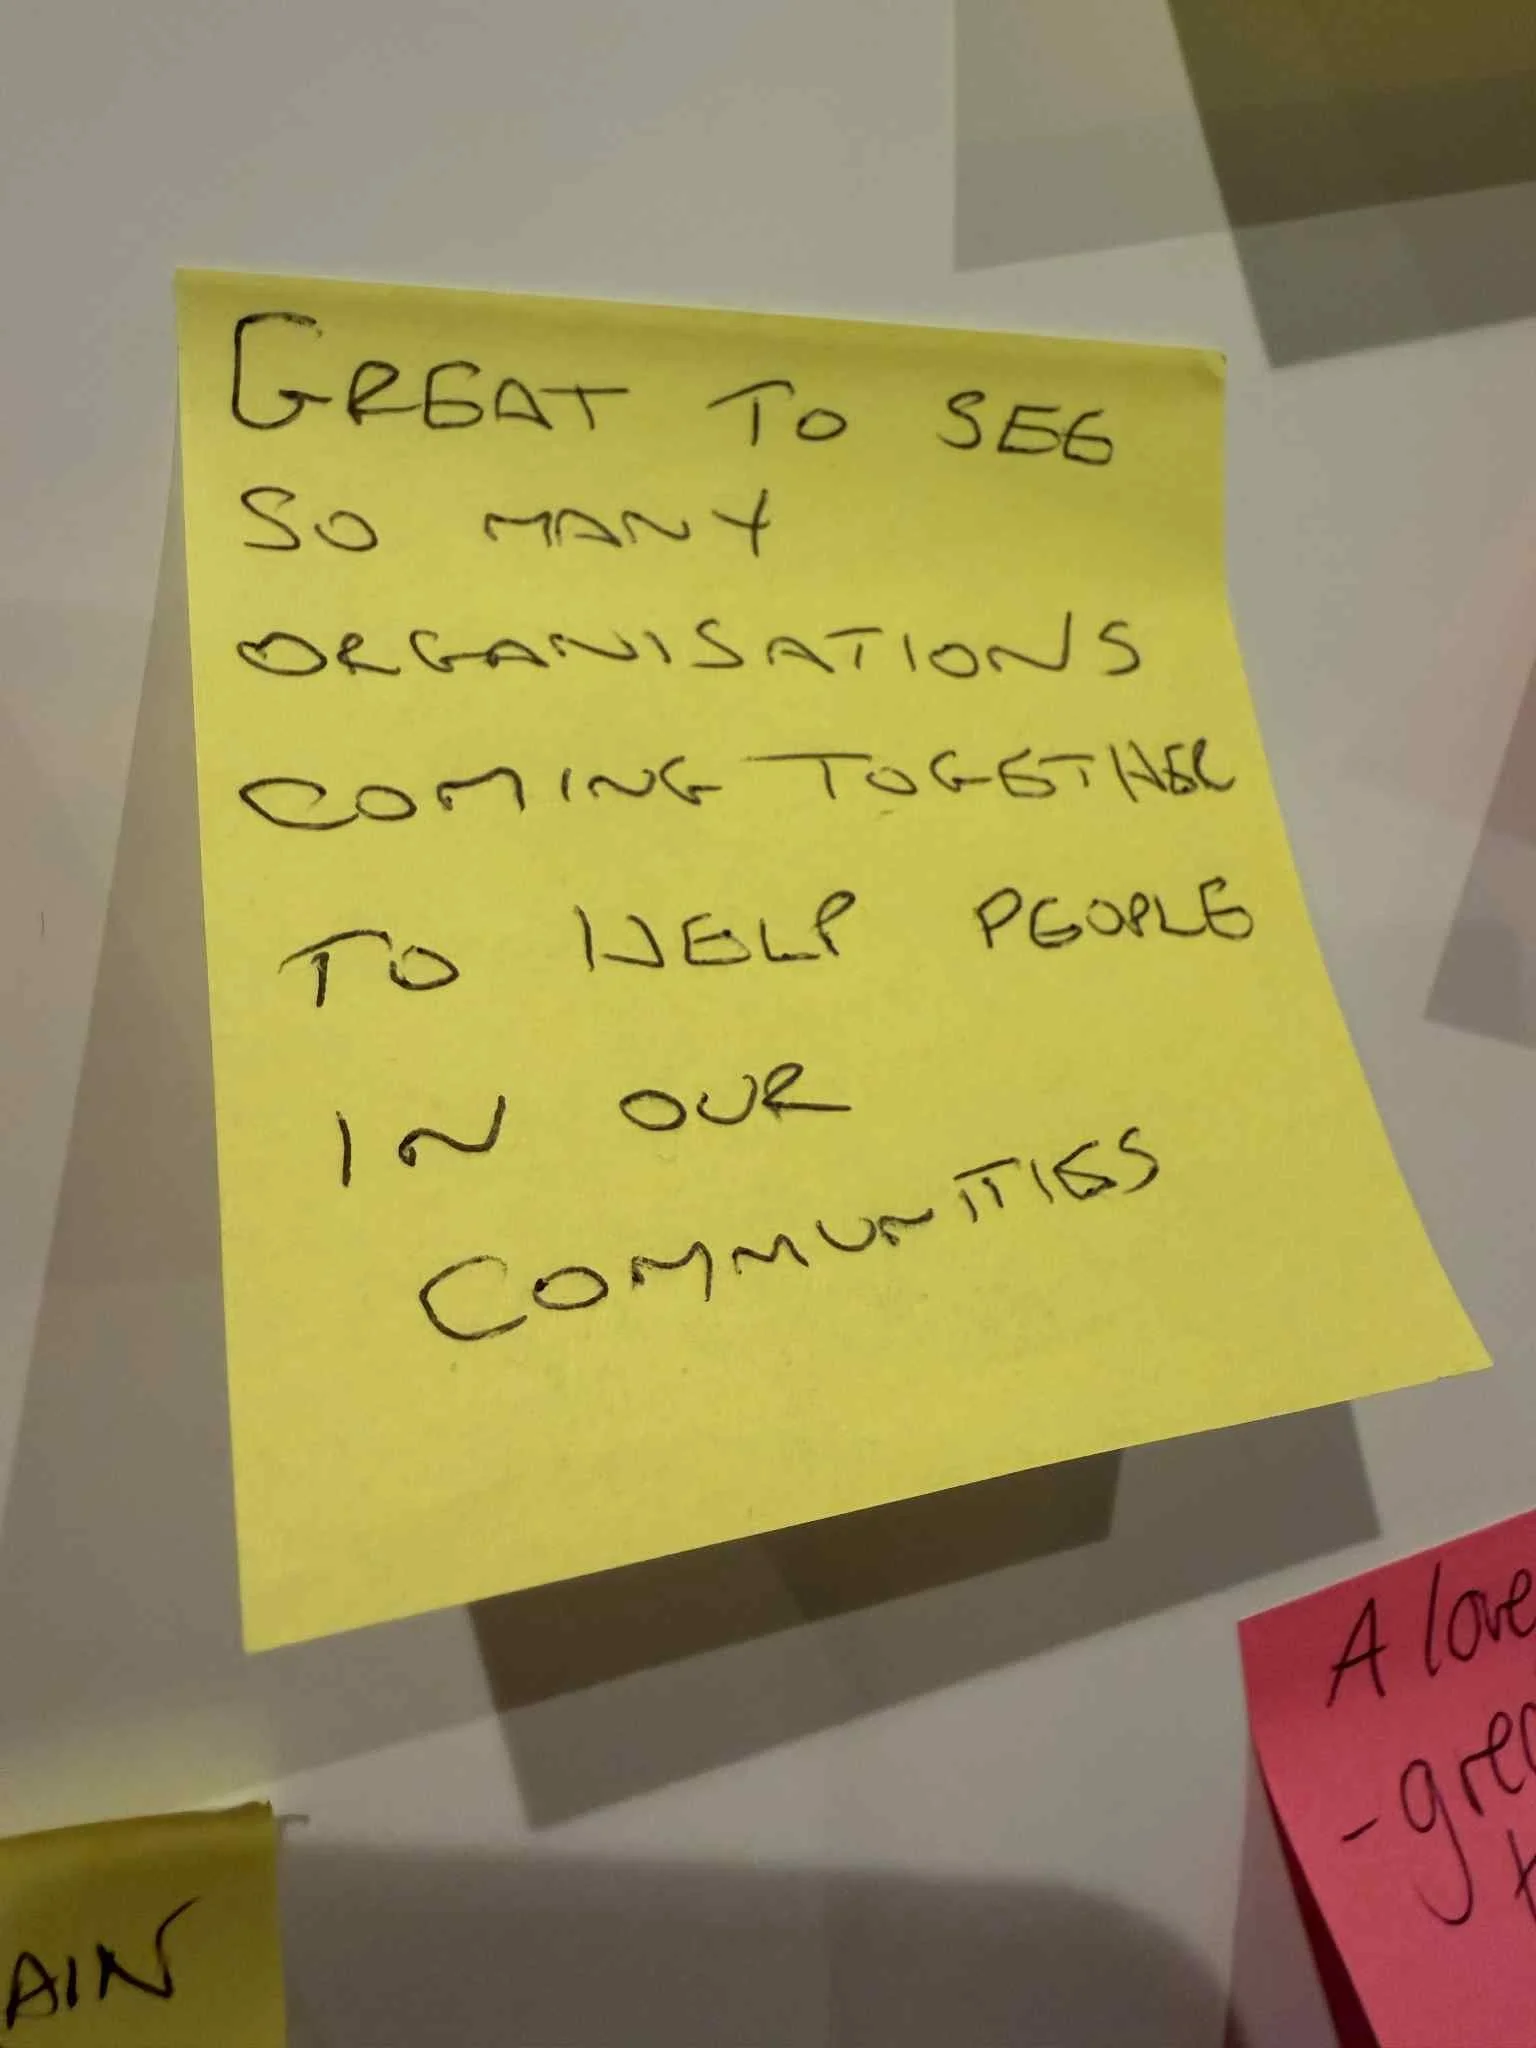 GREAT TO SEE
SO MANY
ORGANISATIONS
COMING TOGETHER
TO HELP PEOPLE
IN OUR
COMMUNITIES
A